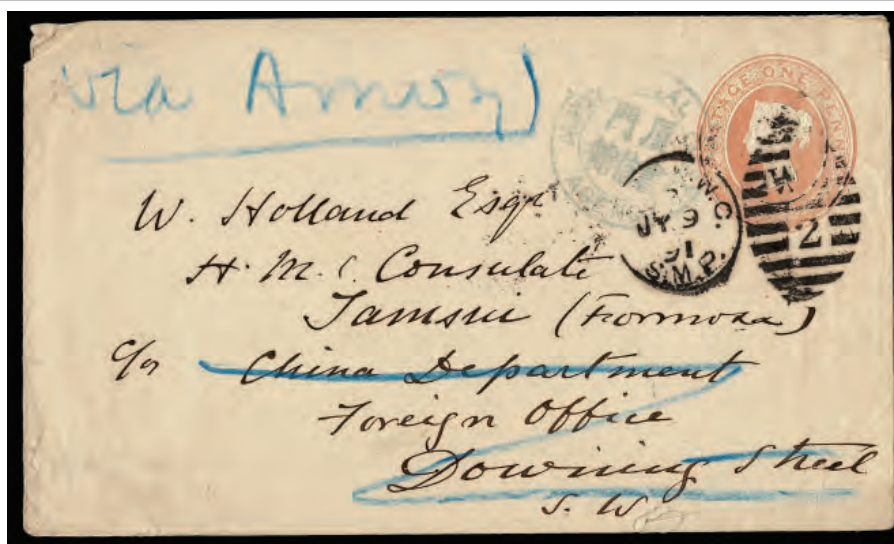 via Amoy
POSTAGE ONE PENNY
W.C.
JY 9
91
S.M.P.
2
W. Holland Esqr
H. M. Consulate
Tamsui (Formosa)
c/o China Department
Foreign Office
Downing Street
S. W